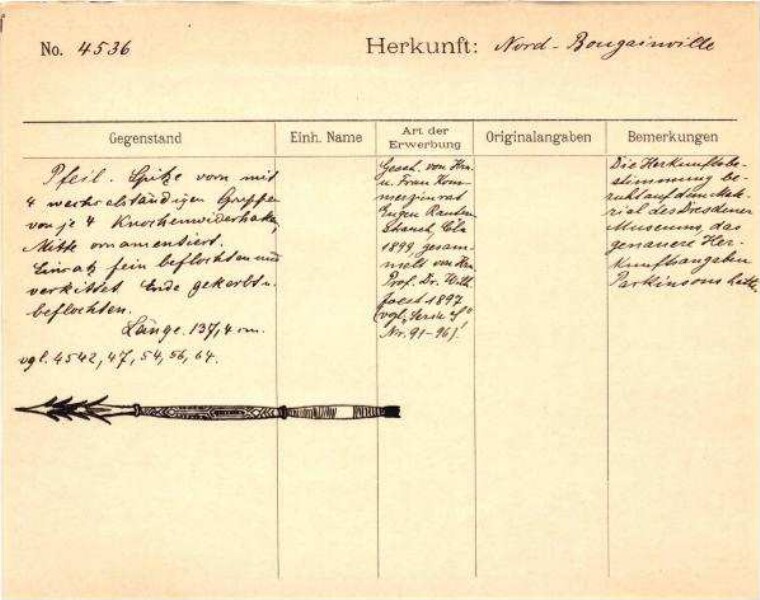 No. 4536
Herkunft: Nord-Bougainville
Gegenstand
Einh. Name
Art der Erwerbung
Originalangaben
Bemerkungen
Pfeil. Spitze vorn mit
4 wechselständigen Gruppen
von je 4 Knochenwiderhaken,
Mitte ornamentiert.
Einsatz fein beflochten und
verkittet Ende gekerbt u.
beflochten.
Länge. 137,4 cm.
vgl. 4542, 47, 54, 56, 64.
Gesch. von Hrn.
u. Frau Kom-
merzienrat
Eugen Rauten-
strauch, Cöln
1899, gesam-
melt von Hrn.
Prof. Dr. Wilh.
Joest 1897
(vgl. Serie
Nr. 91-96)!
Die Herkunftsbe-
stimmung be-
ruht auf dem Mate-
rial des Dresdener
Museums, das
genauere Her-
kunftsangaben
Parkinsons hatte.